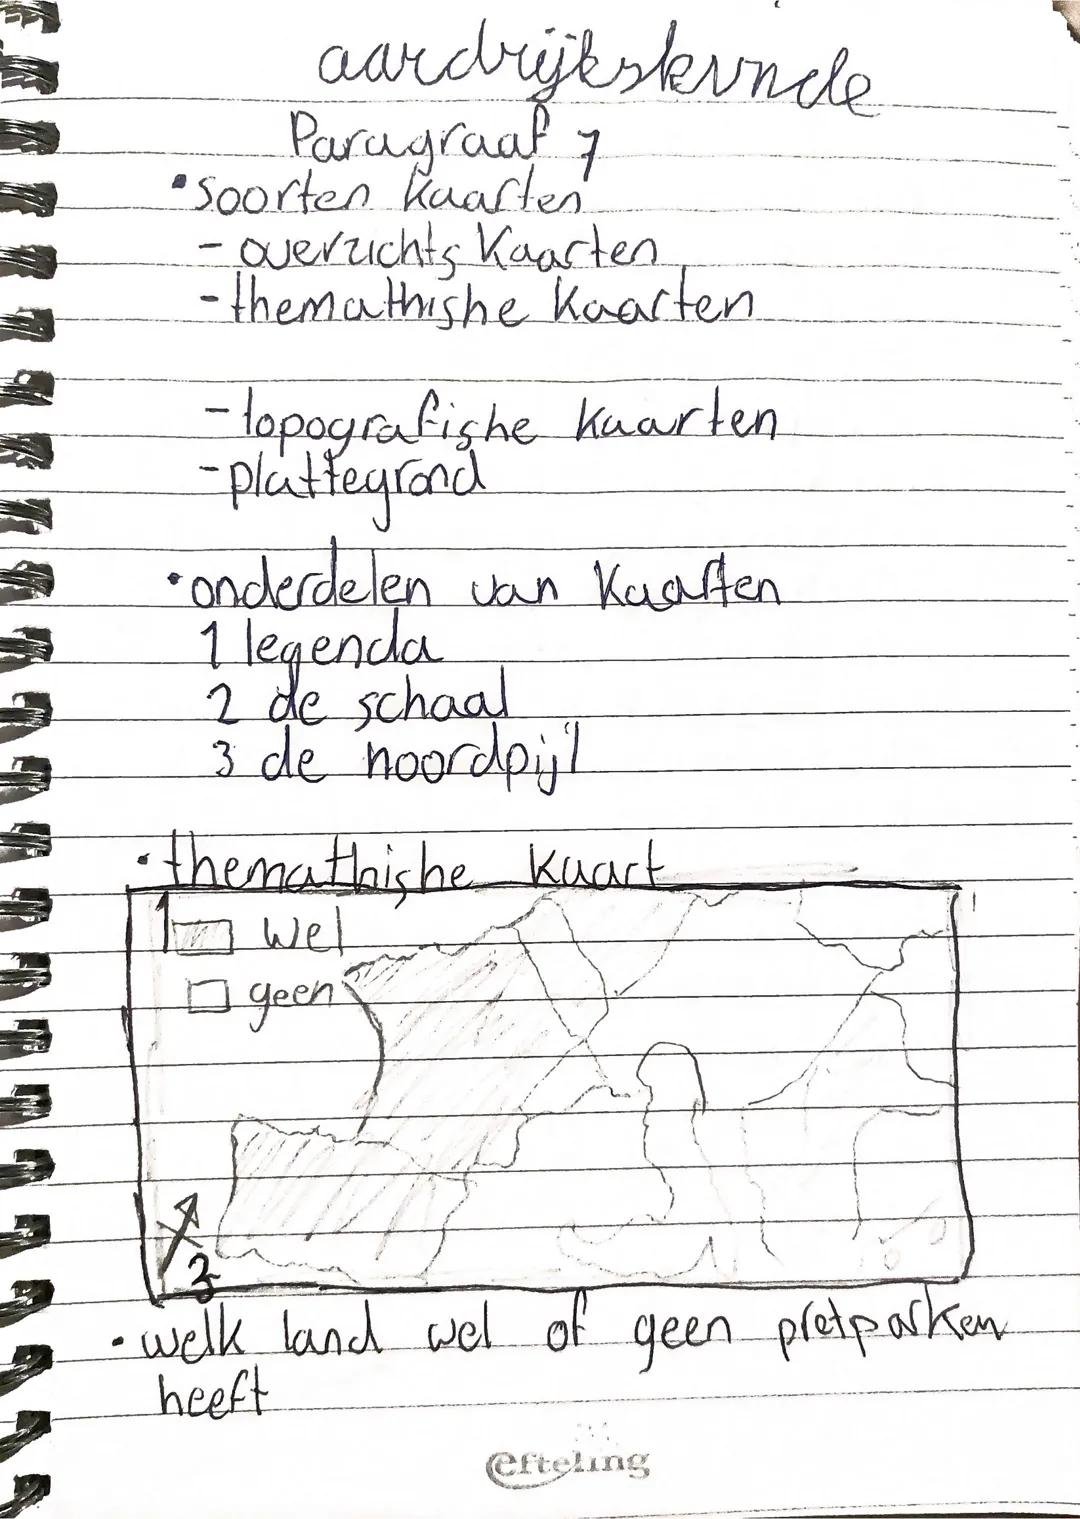 aardrijkskunde
Paragraaf 7
• soorten kaarten
- overzichts kaarten
- themathishe kaarten
- topografishe kaarten
- plattegrond
• onderdelen van kaarten
1 legenda
2 de schaal
3 de noordpijl
• themathishe kaart
1 wel
geen
3
• welk land wel of geen pretparken
heeft
efteling